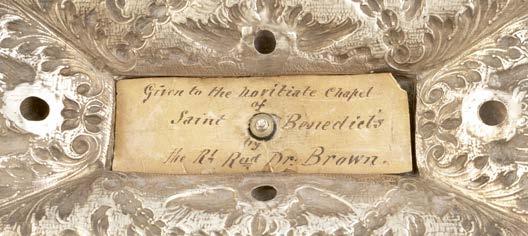 Given to the Novitiate Chapel
of
Saint Benedict's
by
the Rt Revd Dr Brown.